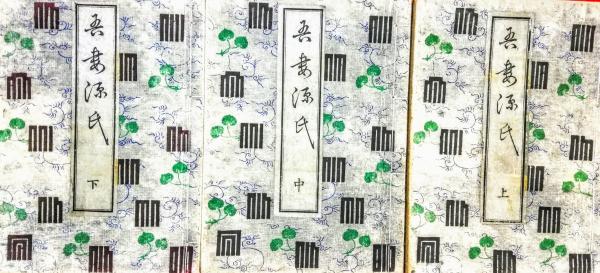 吾妻源氏
上
吾妻源氏
中
吾妻源氏
下